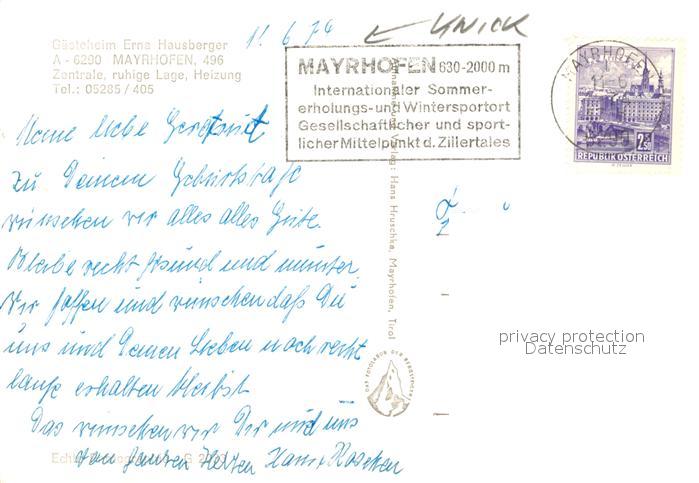 11.6.74
← KNICK
Gästeheim Erna Hausberger
A - 6290 MAYRHOFEN, 496
Zentrale, ruhige Lage, Heizung
Tel.: 05285 / 405
MAYRHOFEN 630-2000 m
Internationaler Sommer-
erholungs- und Wintersportort
Gesellschaftlicher und sport-
licher Mittelpunkt d. Zillertales
MAYRHOFEN
2.50
REPUBLIK ÖSTERREICH
Meine liebe Gertrud
zu Deinem Geburtstage
wünschen wir alles alles Gute.
Bleibe recht gesund und munter
Wir hoffen und wünschen daß Du
uns und Deinen Lieben noch recht
lange erhalten bleibst
Das wünschen wir Dir und uns
von ganzen Herzen Hans +
Verlag: Hans Hruschka, Mayrhofen, Tirol
DAS FOTOLABOR DER BERGSTEIGER
privacy protection
Datenschutz